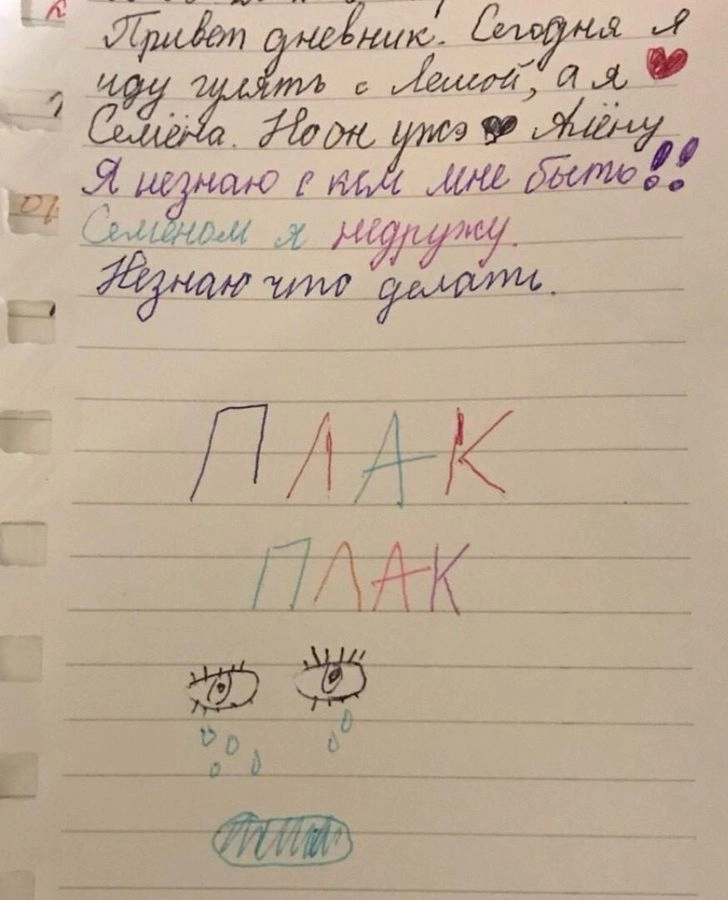 Привет дневник. Сегодня я
иду гулять с Лешой, а я ❤
Семёна. Но он ужэ 🖤 Алёну
Я незнаю с кем мне быть!!
Семёном я недружу.
Незнаю что делать.
ПЛАК
ПЛАК